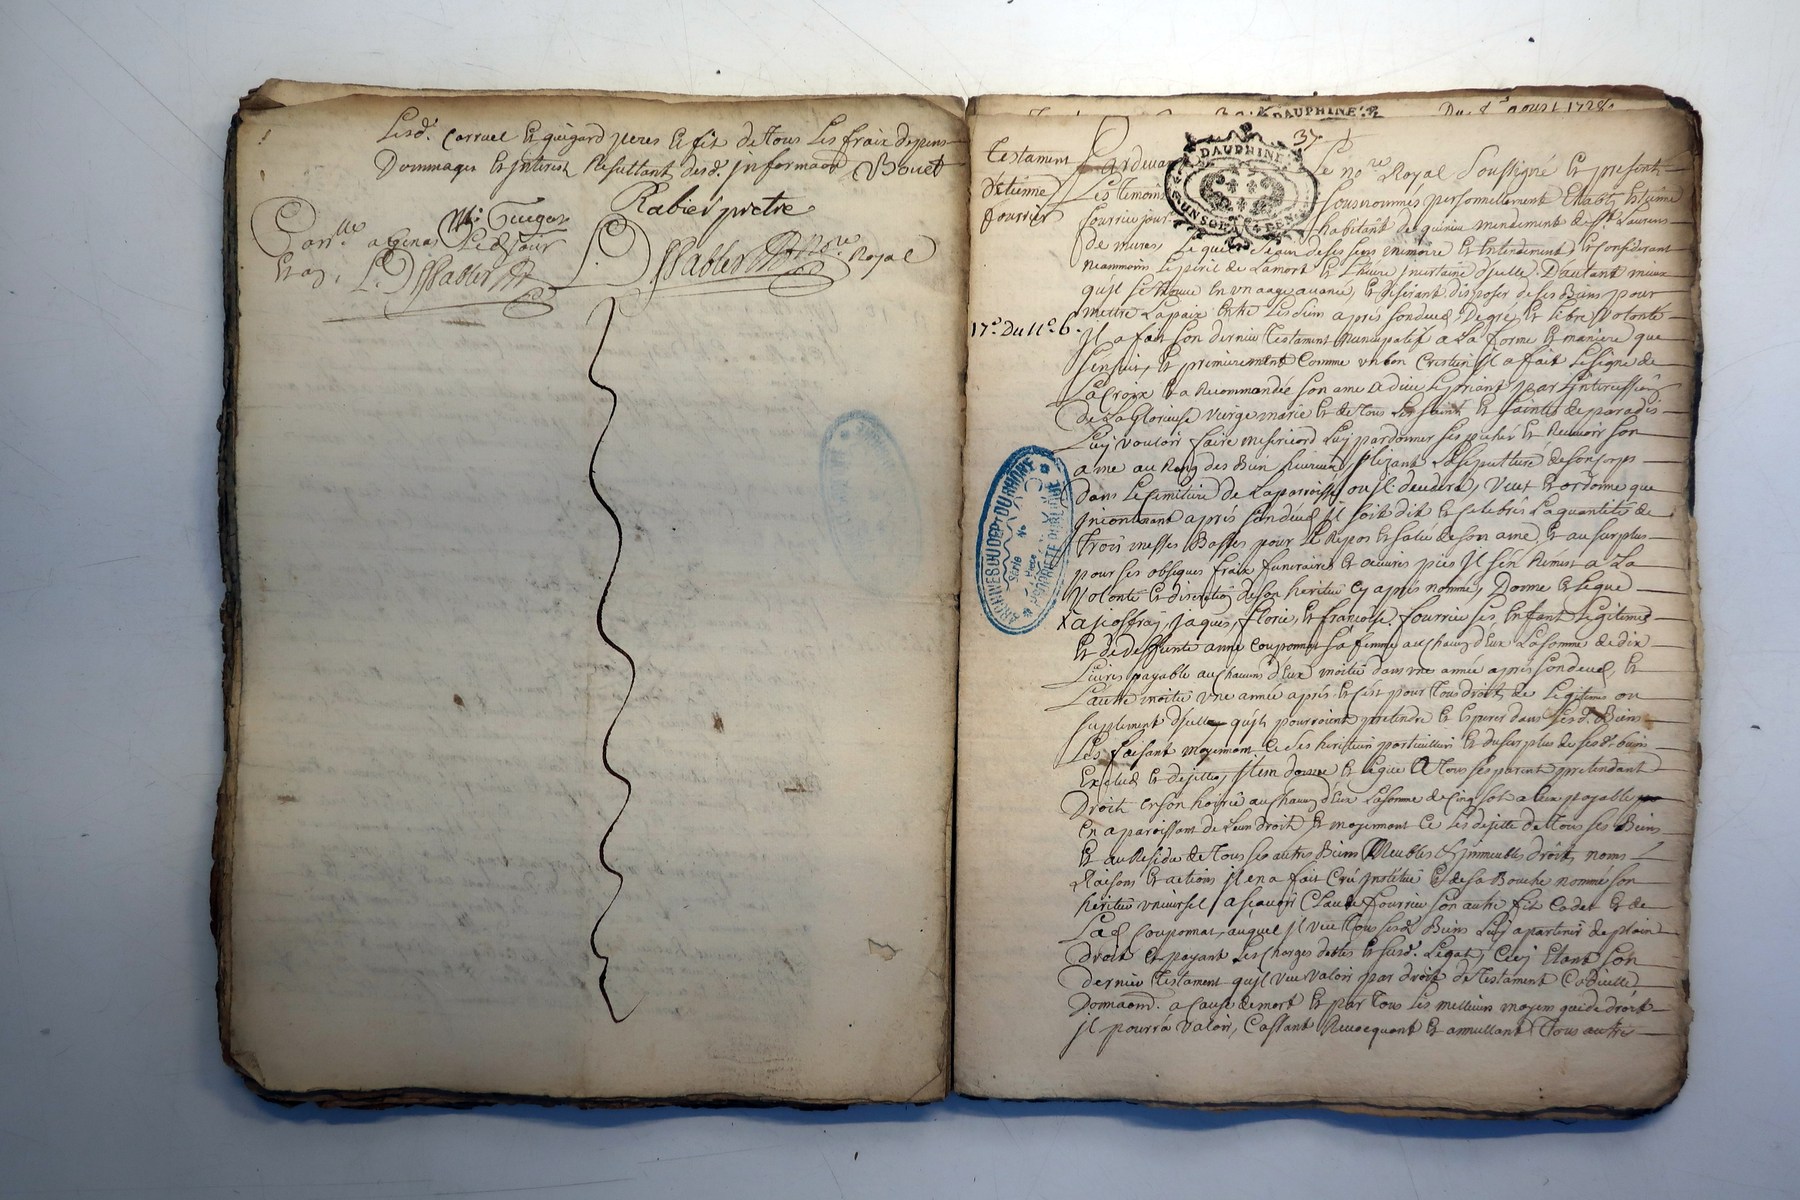 Lesd. Carruel et guigard peres et fils de tous les fraix depens
Dommages et interest Resultant desd. informaõn Bouet
Rabier pretre
Con.lle a Genas
et ay.
Royal
DAUPHINE
Du aoust 1728.
37
DAUPHINE
UN SOL 4 DEN
Testament
d'etienne
fourrier
17.e Du 11.e 6.
Pardevant Le no.re Royal Soussigné et presents
Les temoins sousnommés personnellement etably Estiene
fourrier jour. habitant de quirieu mendement de S.t Laurens
de mures, Lequel de ses sens memoire et Entendement et Considerant
neammoin Le peril de La mort et L'heure jncertaine d'jcelle. D'autant mieux
qu'jl se trouve en un aage avancé, et desirant disposer de ses Biens pour
mettre La paix entre Les siens apres son deceds, De gré et libre volonté
Jl a fait son dernier testament nuncupatif a La forme et maniere que
s'ensuit, et premierement Comme un bon Cretien jl a fait Le signe de
La Croix et a Recommandée son ame a dieu Le priant par L'intercession
de La Glorieuse vierge marie et de tous Les saints et saintes de paradis
Luy vouloir faire misericord Luy pardonner ses pechés et Recevoir son
ame au Rang des Bien heureux, Elizant La sepulture de son Corps
dans Le Cemitiere de La parroisse ou jl decedera, veut et ordonne que
jncontinant aprés son deceds jl soit dit et celebrés La quantité de
trois messes Basses pour Le Repos et salut de son ame, et au surplus
pour ses obseques fraix funeraires et oeuvres pies jl s'en Remet a La
volonté et discretion de son heritier Cy aprés nommé, Donne et Legue
x a joffray, jaques, florie, et francoise fourrier ses Enfant Legitimes
et de deffunte anne Couponnat sa femme au chacun d'Eux La somme de dix
Livres payable au chacuns d'Eux moitié dans une année aprés son deceds, et
L'autre moitié une année aprés et c'est pour tous droits de Legitime ou
supplement d'jcelle qu'jls pourroient pretendre et esperer dans sesd. Biens
Les faisant moyennant ce ses heritiers particulliers et du surplus de sesd. biens
Exclud et dejette, jtem donne et Legue a tous ses parents pretendant
Droit en son hoirie au chacun d'Eux La somme de cinq sols a Eux payable
en aparoissant de Leur droit et moyennant ce Les dejette de tous ses Biens
et au Residu de tous ses autres Biens Meubles et jmmeubles droits, noms
Raisons et actions jl en a fait Créé jnstitué et de sa Bouche nommé son
heritier universel a sçavoir Claude fourrier son autre fils Cadet et de
Lad. Couponnat, auquel jl veut tous sesd. Biens Luy apartenir de plain
droit en payant Les charges debtes et susd. Legats, Cecy Etant son
dernier testament qu'jl veut valoir par droit de testament Codicille
Donnaõn. a cause de mort et par tous Les meilleurs moyens que de droit
jl pourra valoir, Cassant Revocquant et annullant tous autres
ARCHIVES DU DEP.T DU RHÔNE
Série
No
Pièce
PROPRIÉTÉ PUBLIQUE